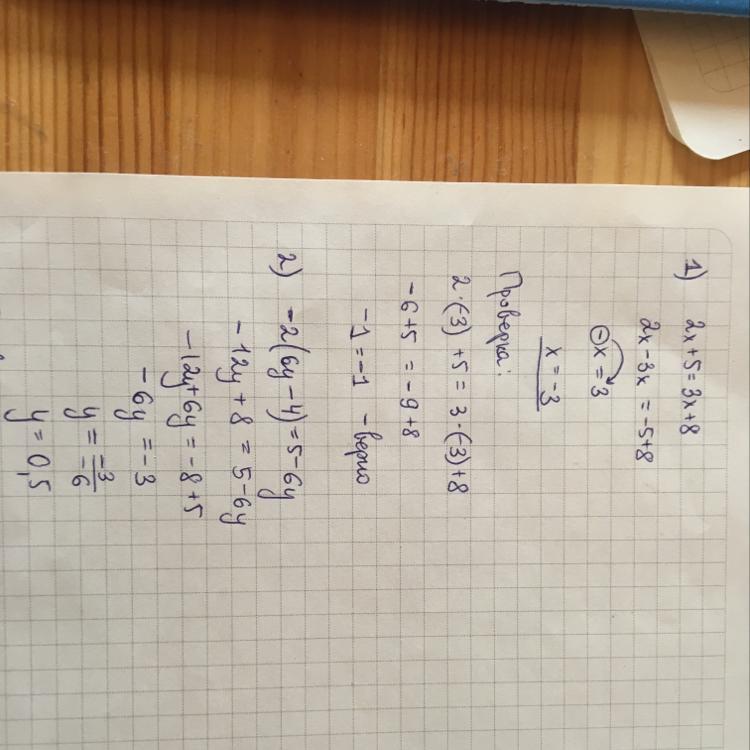 1) 2x+5=3x+8
2x-3x=-5+8
-x=3
x=-3
Проверка:
2·(-3)+5=3·(-3)+8
-6+5=-9+8
-1=-1 -верно
2) -2(6y-4)=5-6y
-12y+8=5-6y
-12y+6y=-8+5
-6y=-3
y=-3/-6
y=0,5